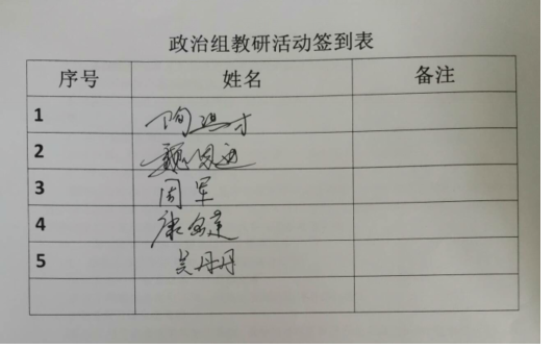 政治组教研活动签到表
序号 姓名 备注
1
2 魏
3 周军
4 康
5 吴丹丹